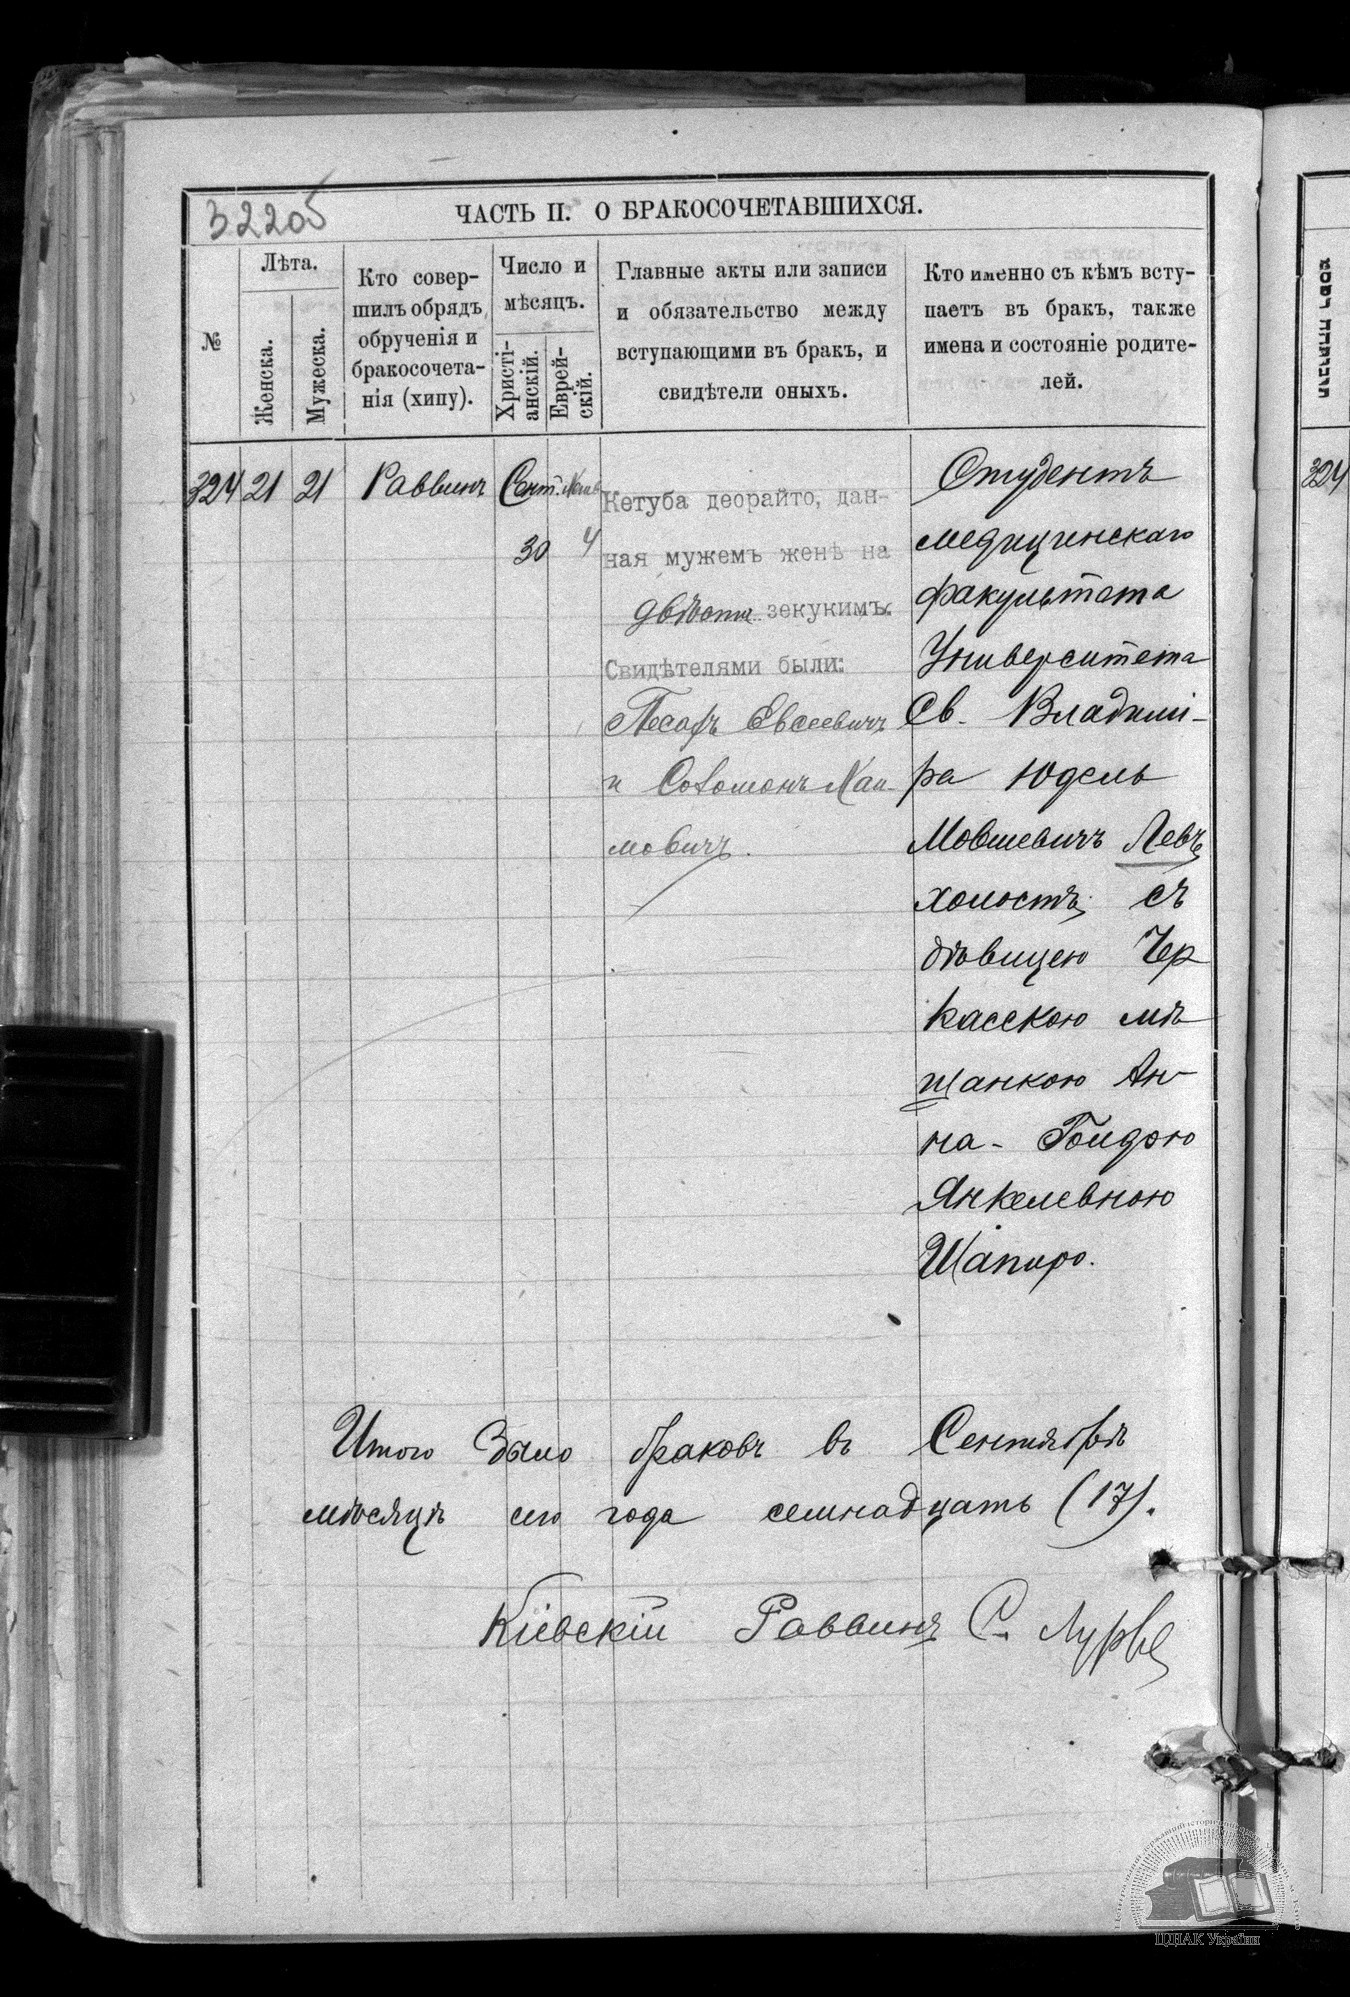 322об
ЧАСТЬ II. О БРАКОСОЧЕТАВШИХСЯ.
№
Лѣта.
Женска.
Мужеска.
Кто совер-
шилъ обрядъ
обрученія и
бракосочета-
нія (хипу).
Число и
мѣсяцъ.
Христі-
анскій.
Еврей-
скій.
Главные акты или записи
и обязательство между
вступающими въ бракъ, и
свидѣтели оныхъ.
Кто именно съ кѣмъ всту-
паетъ въ бракъ, также
имена и состояніе родите-
лей.
324 21 21 Раввинъ Сент.
30 4
Кетуба деорайто, дан-
ная мужемъ женѣ на
двѣсти зекукимъ.
Свидѣтелями были:
Евсеевичъ
и Соломонъ Хаи-
мовичъ.
Студентъ
медицинскаго
факультета
Университета
Св. Владимі-
ра Юдель
Мовшевичъ Левъ
холостъ, съ
дѣвицею Чер
касскою мѣ
щанкою Ан-
на-Голдою
Янкелевною
Шапиро.
Итого было браковъ въ Сентябрѣ
мѣсяцѣ сего года семнадцать (17).
Кіевскій Раввинъ С. Лурье
324
ЦДІАК України